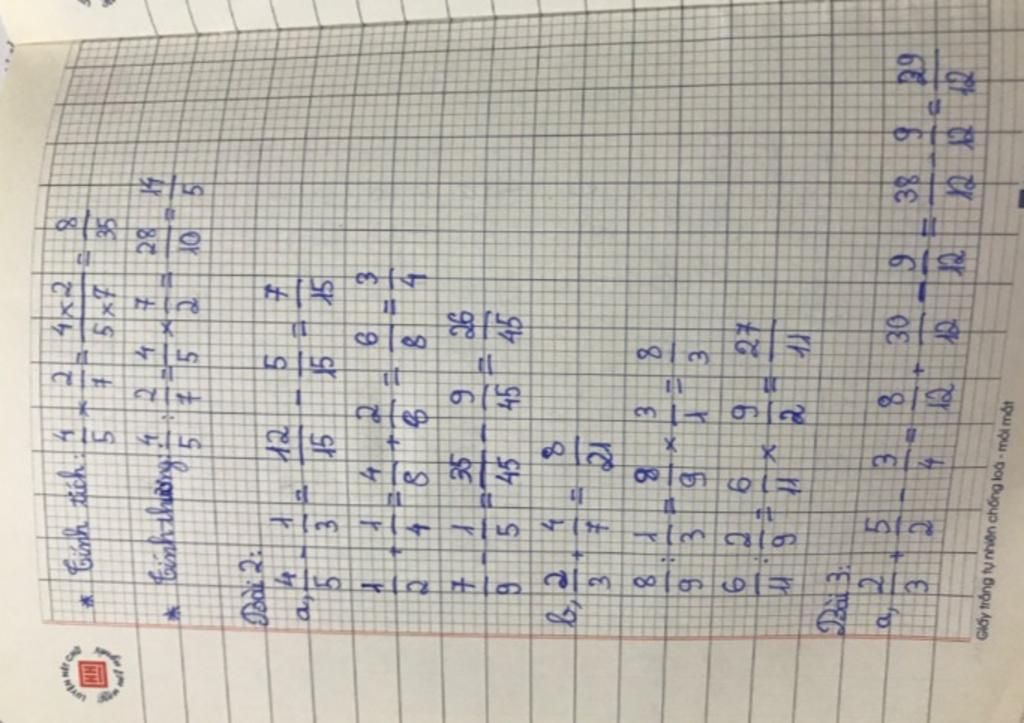 * Tính tích: 4/5 × 2/7 = 4×2/5×7 = 8/35
* Tính thương: 4/5 : 2/7 = 4/5 × 7/2 = 28/10 = 14/5
Bài 2:
a, 4/5 - 1/3 = 12/15 - 5/15 = 7/15
1/2 + 1/4 = 4/8 + 2/8 = 6/8 = 3/4
7/9 - 1/5 = 35/45 - 9/45 = 26/45
b, 2/3 + 4/7 = 8/21
8/9 : 1/3 = 8/9 × 3/1 = 8/3
6/11 : 2/9 = 6/11 × 9/2 = 27/11
Bài 3:
a, 2/3 + 5/2 - 3/4 = 8/12 + 30/12 - 9/12 = 38/12 - 9/12 = 29/12
Giấy trắng tự nhiên chống loá - mỏi mắt
LUYỆN NÉT CHỮ
HH